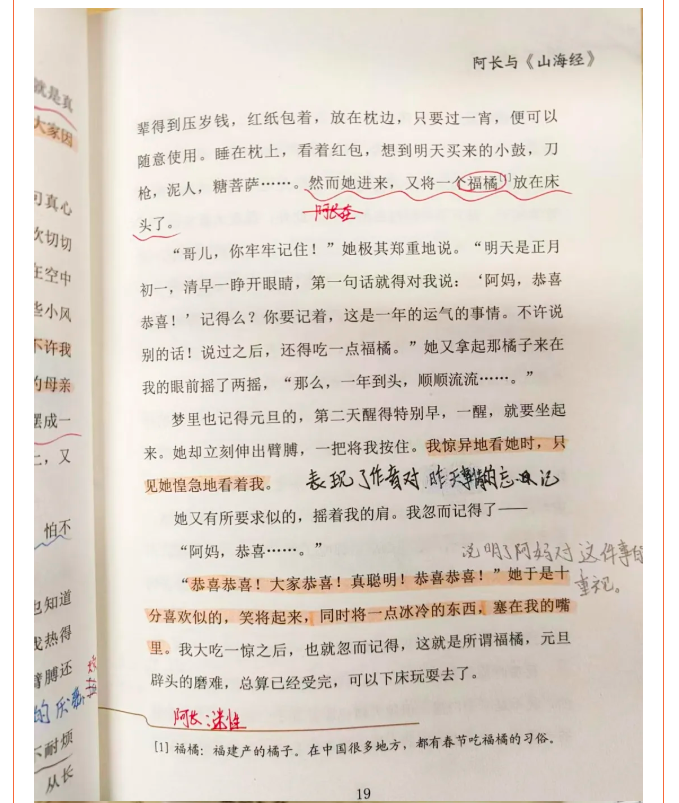 就是真
大家因
可真心
次切切
在空中
些小风
不许我
的母亲
摆成一
二，又
怕不
也知道
我热得
臂膊还
不耐烦
从长
阿长与《山海经》
辈得到压岁钱，红纸包着，放在枕边，只要过一宵，便可以
随意使用。睡在枕上，看着红包，想到明天买来的小鼓，刀
枪，泥人，糖菩萨……。然而她进来，又将一个福橘[1]放在床
头了。
“哥儿，你牢牢记住！”她极其郑重地说。“明天是正月
初一，清早一睁开眼睛，第一句话就得对我说：‘阿妈，恭喜
恭喜！’记得么？你要记着，这是一年的运气的事情。不许说
别的话！说过之后，还得吃一点福橘。”她又拿起那橘子来在
我的眼前摇了两摇，“那么，一年到头，顺顺流流……。”
梦里也记得元旦的，第二天醒得特别早，一醒，就要坐起
来。她却立刻伸出臂膊，一把将我按住。我惊异地看她时，只
见她惶急地看着我。
表现了作者对昨天事情的忘记
她又有所要求似的，摇着我的肩。我忽而记得了——
“阿妈，恭喜……。”
说明了阿妈对这件事的
重视。
“恭喜恭喜！大家恭喜！真聪明！恭喜恭喜！”她于是十
分喜欢似的，笑将起来，同时将一点冰冷的东西，塞在我的嘴
里。我大吃一惊之后，也就忽而记得，这就是所谓福橘，元旦
辟头的磨难，总算已经受完，可以下床玩耍去了。
阿长：迷性
[1] 福橘：福建产的橘子。在中国很多地方，都有春节吃福橘的习俗。
19